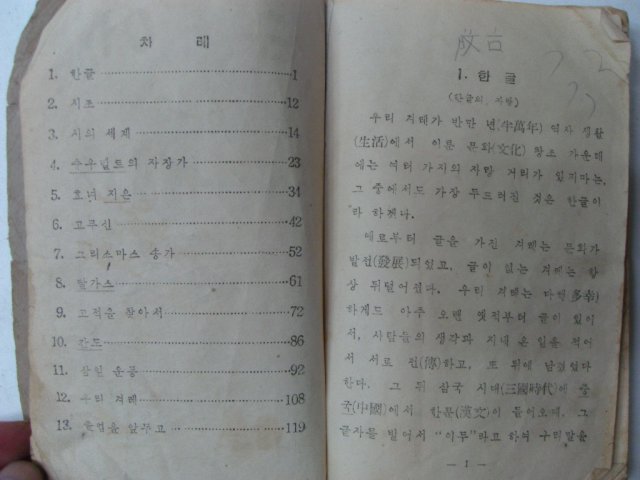 차례
1. 한글 1
2. 시조 12
3. 시의 세계 14
4. 수우밀드의 자장가 23
5. 호너 지은 34
6. 고무신 42
7. 크리스마스 송가 52
8. 탈가스 61
9. 고적을 찾아서 72
10. 간도 86
11. 삼일 운동 92
12. 우리 겨레 108
13. 졸업을 앞두고 119
1. 한글
(한글의 자랑)
우리 겨레가 반만 년(半萬年) 역사 생활
(生活)에서 이룬 문화(文化) 창조 가운데
에는 여러 가지의 자랑 거리가 있지마는,
그 중에서도 가장 두드러진 것은 한글이
라 하겠다.
예로부터 글을 가진 겨레는 문화가
발전(發展)되었고, 글이 없는 겨레는 항
상 뒤떨어졌다. 우리 겨레는 다행(多幸)
하게도 아주 오랜 옛적부터 글이 있어
서, 사람들의 생각과 지내 온 일을 적어
서 서로 전(傳)하고, 또 뒤에 남겼었다
한다. 그 뒤 삼국 시대(三國時代)에 중
국(中國)에서 한문(漢文)이 들어오매, 그
글자를 빌어서 "이두"라고 하여 우리말을
— 1 —